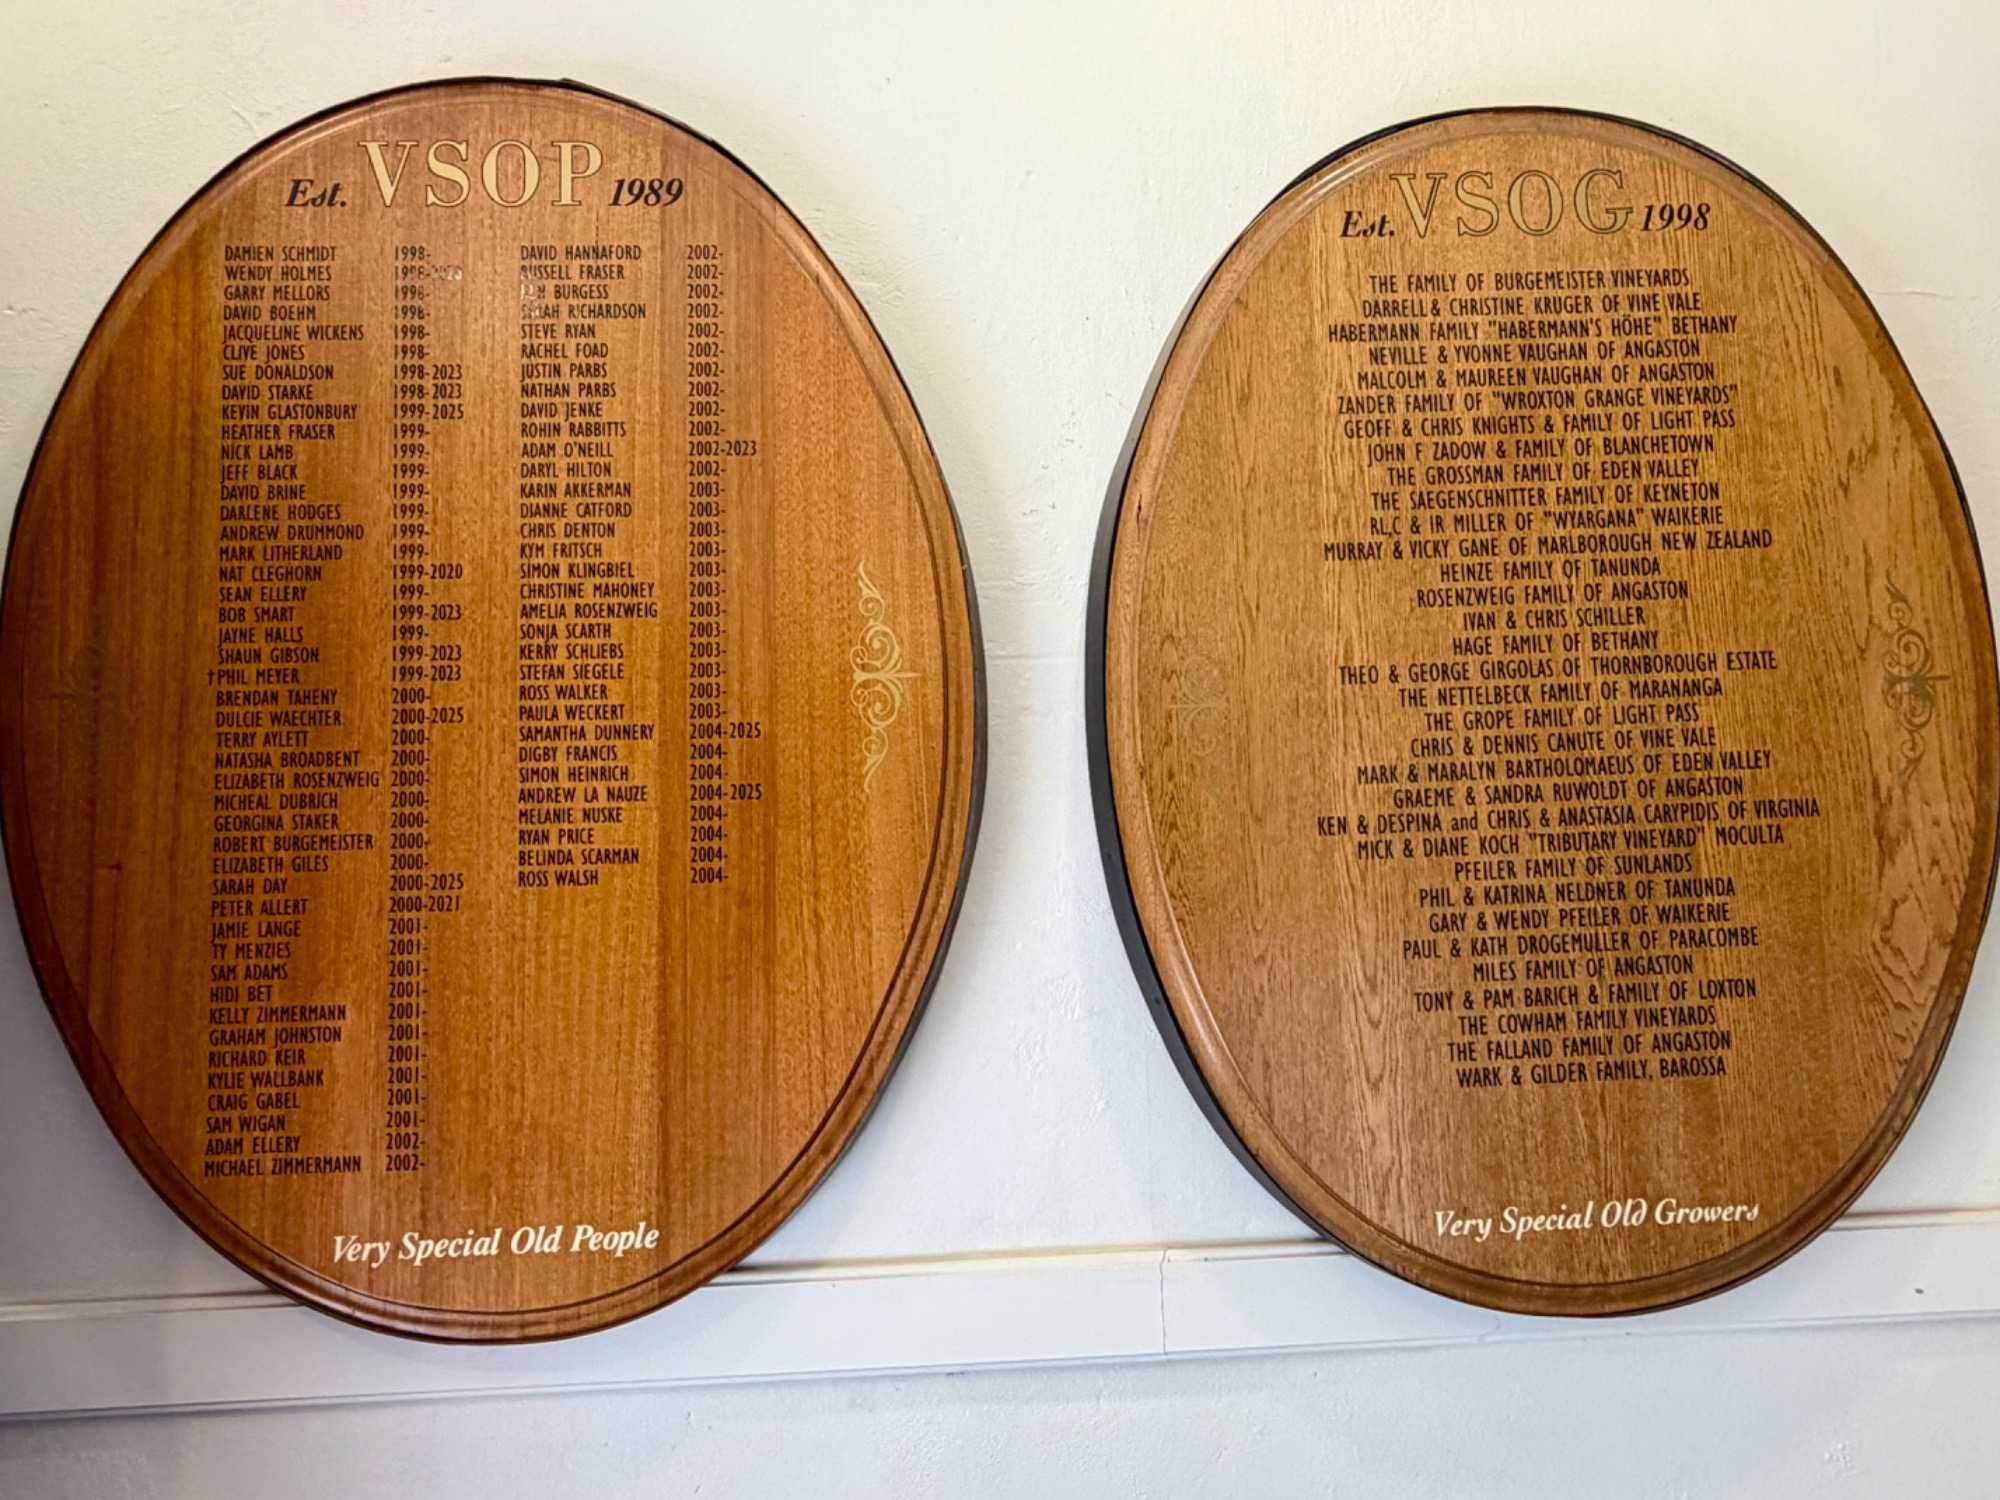 Est. VSOP 1989
DAMIEN SCHMIDT 1998-
WENDY HOLMES
GARRY MELLORS 1998-
DAVID BOEHM 1998-
JACQUELINE WICKENS 1998-
CLIVE JONES 1998-
SUE DONALDSON 1998-2023
DAVID STARKE 1998-2023
KEVIN GLASTONBURY 1999-2025
HEATHER FRASER 1999-
NICK LAMB 1999-
JEFF BLACK 1999-
DAVID BRINE 1999-
DARLENE HODGES 1999-
ANDREW DRUMMOND 1999-
MARK LITHERLAND 1999-
NAT CLEGHORN 1999-2020
SEAN ELLERY 1999-
BOB SMART 1999-2023
JAYNE HALLS 1999-
SHAUN GIBSON 1999-2023
†PHIL MEYER 1999-2023
BRENDAN TAHENY 2000-
DULCIE WAECHTER 2000-2025
TERRY AYLETT 2000-
NATASHA BROADBENT 2000-
ELIZABETH ROSENZWEIG 2000-
MICHEAL DUBRICH 2000-
GEORGINA STAKER 2000-
ROBERT BURGEMEISTER 2000-
ELIZABETH GILES 2000-
SARAH DAY 2000-2025
PETER ALLERT 2000-2021
JAMIE LANGE 2001-
TY MENZIES 2001-
SAM ADAMS 2001-
HIDI BET 2001-
KELLY ZIMMERMANN 2001-
GRAHAM JOHNSTON 2001-
RICHARD KEIR 2001-
KYLIE WALLBANK 2001-
CRAIG GABEL 2001-
SAM WIGAN 2001-
ADAM ELLERY 2002-
MICHAEL ZIMMERMANN 2002-
DAVID HANNAFORD 2002-
RUSSELL FRASER 2002-
BURGESS 2002-
SARAH RICHARDSON 2002-
STEVE RYAN 2002-
RACHEL FOAD 2002-
JUSTIN PARBS 2002-
NATHAN PARBS 2002-
DAVID JENKE 2002-
ROHIN RABBITTS 2002-
ADAM O'NEILL 2002-2023
DARYL HILTON 2002-
KARIN AKKERMAN 2003-
DIANNE CATFORD 2003-
CHRIS DENTON 2003-
KYM FRITSCH 2003-
SIMON KLINGBIEL 2003-
CHRISTINE MAHONEY 2003-
AMELIA ROSENZWEIG 2003-
SONJA SCARTH 2003-
KERRY SCHLIEBS 2003-
STEFAN SIEGELE 2003-
ROSS WALKER 2003-
PAULA WECKERT 2003-
SAMANTHA DUNNERY 2004-2025
DIGBY FRANCIS 2004-
SIMON HEINRICH 2004-
ANDREW LA NAUZE 2004-2025
MELANIE NUSKE 2004-
RYAN PRICE 2004-
BELINDA SCARMAN 2004-
ROSS WALSH 2004-
Very Special Old People
Est. VSOG 1998
THE FAMILY OF BURGEMEISTER VINEYARDS
DARRELL & CHRISTINE KRUGER OF VINE VALE
HABERMANN FAMILY "HABERMANN'S HÖHE" BETHANY
NEVILLE & YVONNE VAUGHAN OF ANGASTON
MALCOLM & MAUREEN VAUGHAN OF ANGASTON
ZANDER FAMILY OF "WROXTON GRANGE VINEYARDS"
GEOFF & CHRIS KNIGHTS & FAMILY OF LIGHT PASS
JOHN F ZADOW & FAMILY OF BLANCHETOWN
THE GROSSMAN FAMILY OF EDEN VALLEY
THE SAEGENSCHNITTER FAMILY OF KEYNETON
RL,C & IR MILLER OF "WYARGANA" WAIKERIE
MURRAY & VICKY GANE OF MARLBOROUGH NEW ZEALAND
HEINZE FAMILY OF TANUNDA
ROSENZWEIG FAMILY OF ANGASTON
IVAN & CHRIS SCHILLER
HAGE FAMILY OF BETHANY
THEO & GEORGE GIRGOLAS OF THORNBOROUGH ESTATE
THE NETTELBECK FAMILY OF MARANANGA
THE GROPE FAMILY OF LIGHT PASS
CHRIS & DENNIS CANUTE OF VINE VALE
MARK & MARALYN BARTHOLOMAEUS OF EDEN VALLEY
GRAEME & SANDRA RUWOLDT OF ANGASTON
KEN & DESPINA and CHRIS & ANASTASIA CARYPIDIS OF VIRGINIA
MICK & DIANE KOCH "TRIBUTARY VINEYARD" MOCULTA
PFEILER FAMILY OF SUNLANDS
PHIL & KATRINA NELDNER OF TANUNDA
GARY & WENDY PFEILER OF WAIKERIE
PAUL & KATH DROGEMULLER OF PARACOMBE
MILES FAMILY OF ANGASTON
TONY & PAM BARICH & FAMILY OF LOXTON
THE COWHAM FAMILY VINEYARDS
THE FALLAND FAMILY OF ANGASTON
WARK & GILDER FAMILY, BAROSSA
Very Special Old Growers